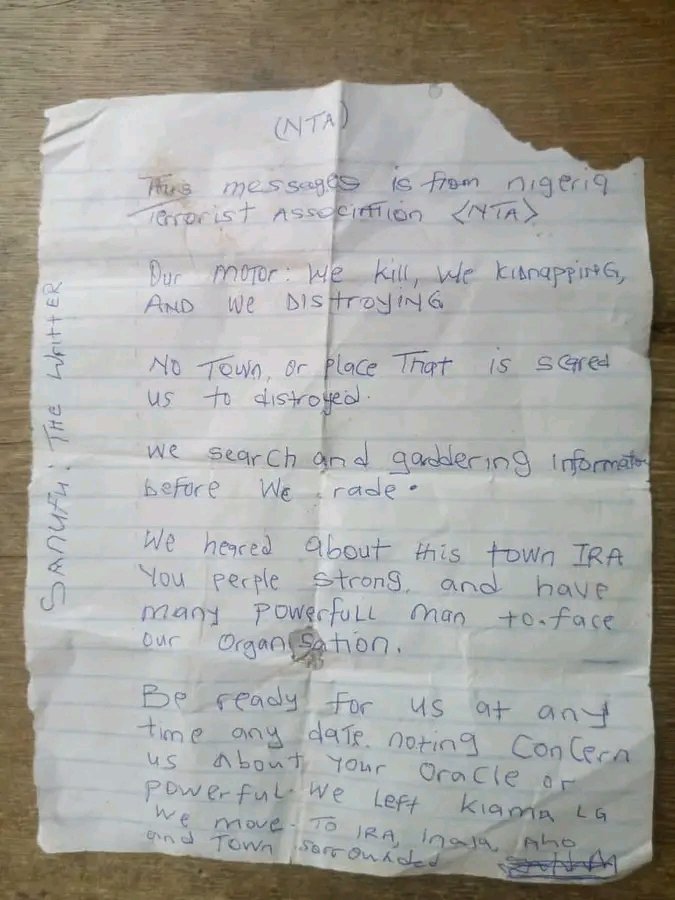 (NTA)
This messages is from nigeria
Terrorist Association <NTA>
Our MOTOR: We Kill, We KIDNAPPING,
AND We DISTROYING
NO TOWN, or place That is scared
us to distroyed.
We search and gaddering informat
before We rade.
We heared about this town IRA
You perple strong, and have
many powerfull man to.face
our organisation.
Be ready for us at any
time any date. noting Concern
us about your oracle or
powerful. We Left Kiama LG
We move. To IRA, Inaja, Aho
and Town sorrounded
SANUFU: THE WRITTER